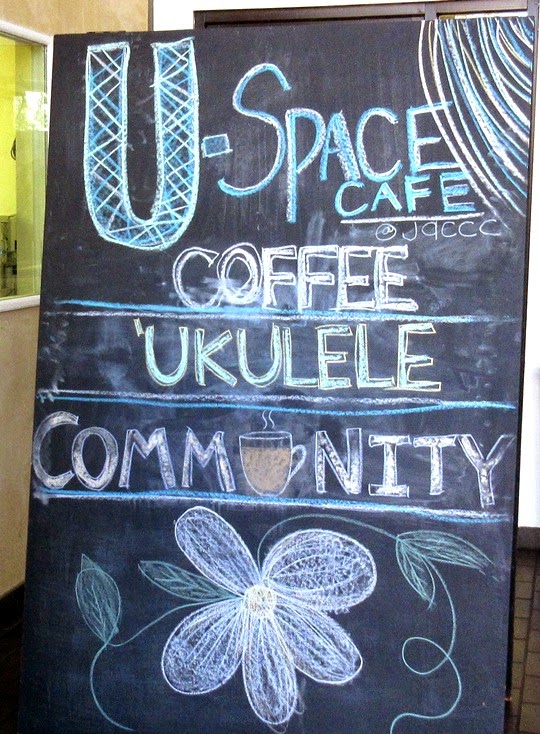 U-SPACE
CAFE
@JACCC
COFFEE
'UKULELE
COMMUNITY